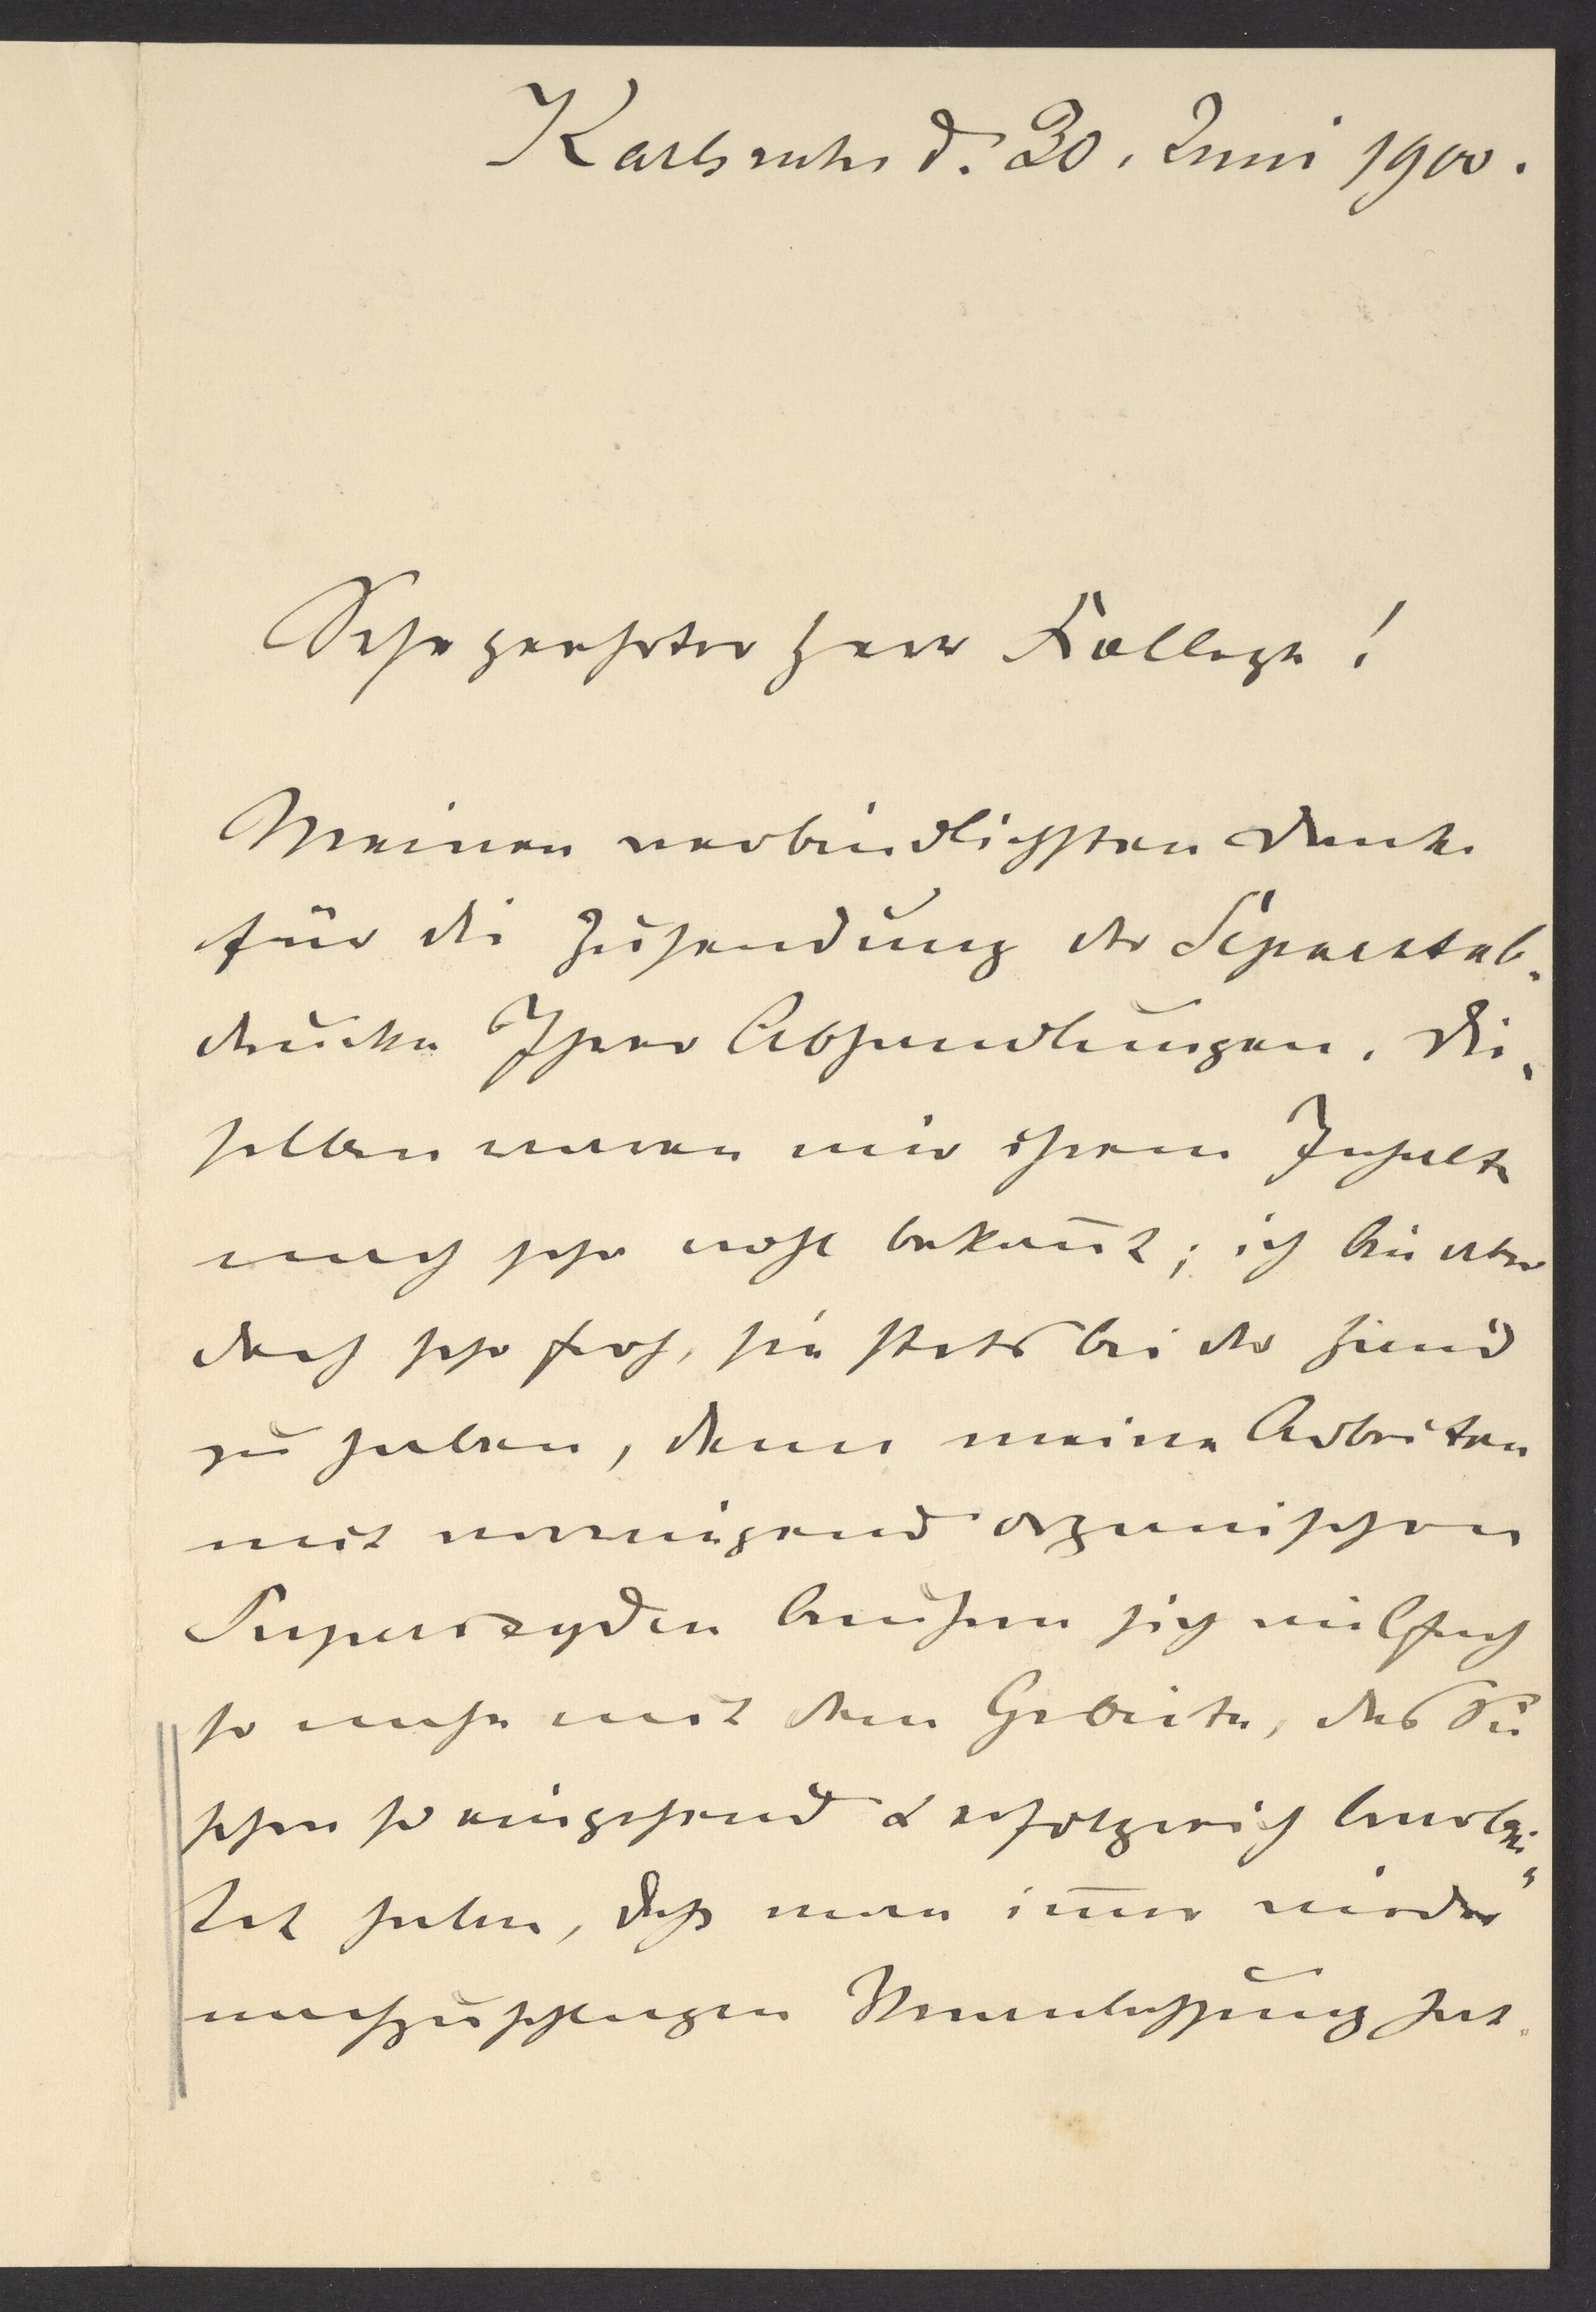 Karlsruhe d. 30. Juni 1900.
Sehr geehrter Herr Kollege!
Meinen verbindlichsten Dank
für die Zusendung der Separatab-
drücke Ihrer Abhandlungen. Die-
selben waren mir ihrem Inhalte
nach sehr wohl bekannt; ich bin aber
doch sehr froh, sie stets bei der Hand
zu haben, denn meine Arbeiten
mit anorganischen
Superoxyden berühren sich vielfach
so nahe mit dem Gebiete, das Sie
schon so eingehend & erfolgreich bearbei-
tet haben, daß man immer wieder
nachzuschlagen Veranlassung hat.